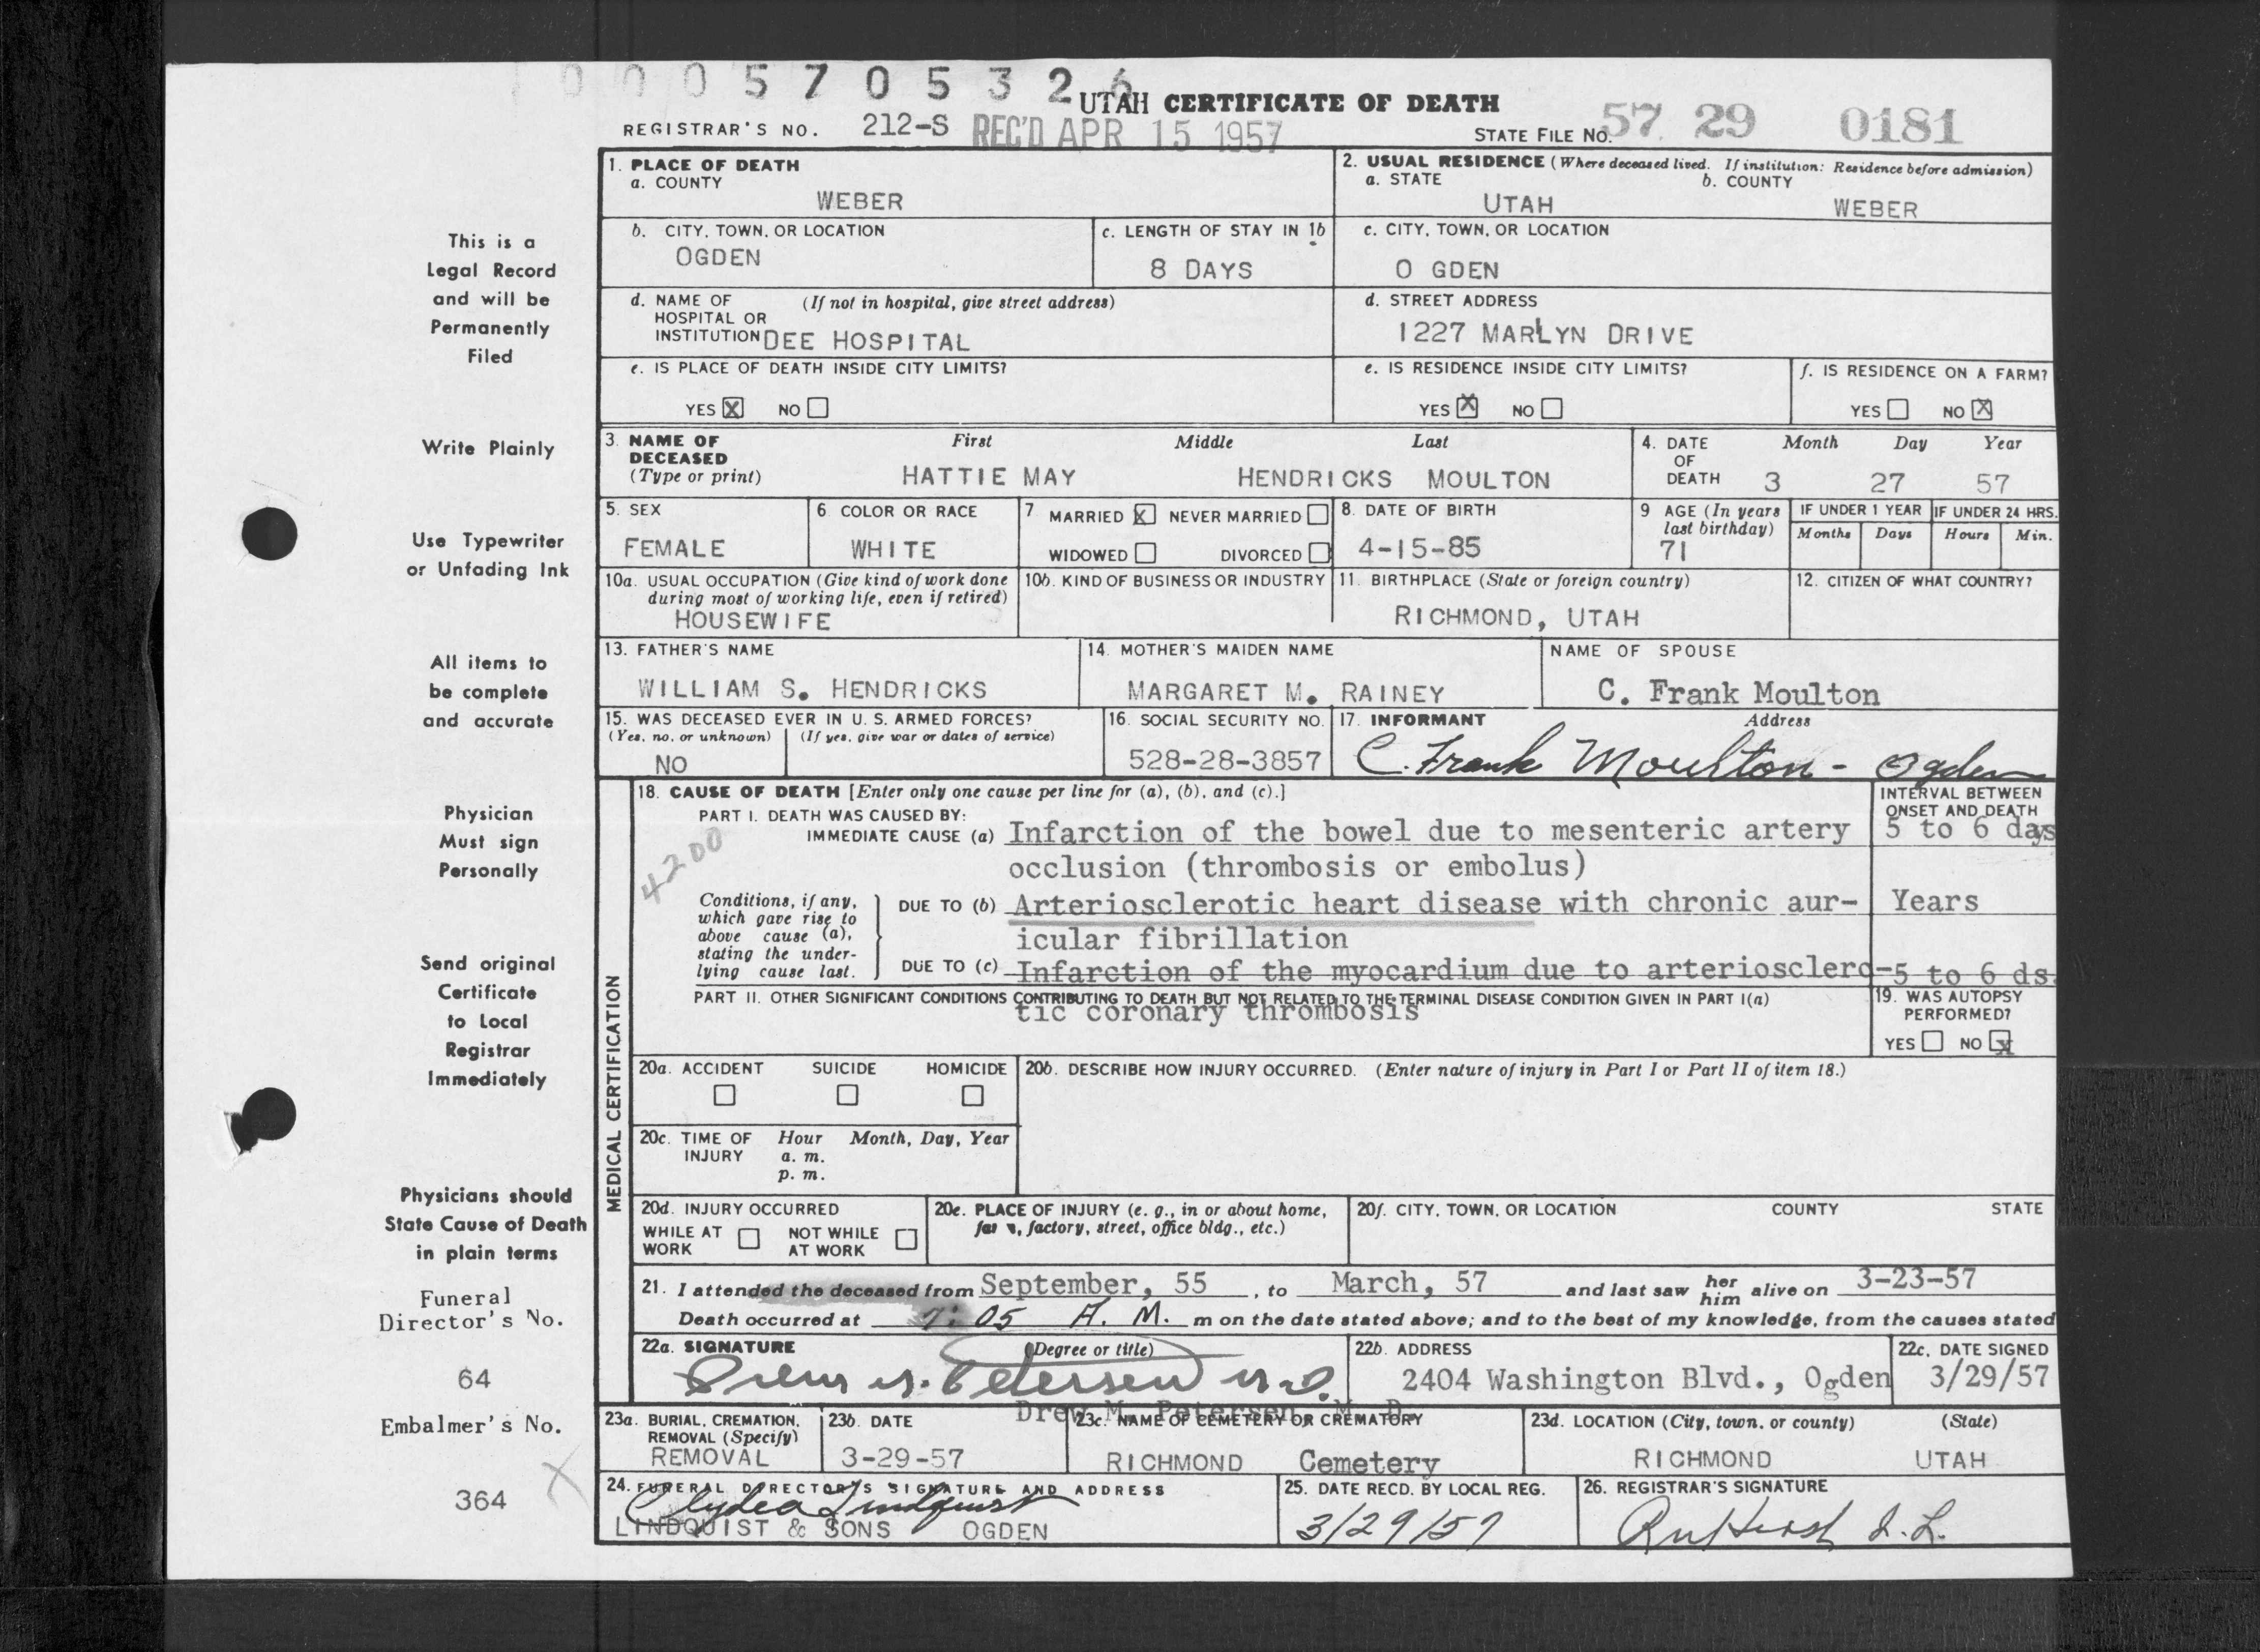 0 0 0 5 7 0 5 3 2 6
UTAH CERTIFICATE OF DEATH
REGISTRAR'S NO. 212-S REC'D APR 15 1957 STATE FILE NO. 57 29 0181
1. PLACE OF DEATH
a. COUNTY
WEBER
2. USUAL RESIDENCE (Where deceased lived. If institution: Residence before admission)
a. STATE b. COUNTY
UTAH WEBER
b. CITY, TOWN, OR LOCATION
OGDEN
c. LENGTH OF STAY IN 1b
8 DAYS
c. CITY, TOWN, OR LOCATION
O GDEN
d. NAME OF (If not in hospital, give street address)
HOSPITAL OR
INSTITUTION DEE HOSPITAL
d. STREET ADDRESS
1227 MARLYN DRIVE
e. IS PLACE OF DEATH INSIDE CITY LIMITS?
YES X NO
e. IS RESIDENCE INSIDE CITY LIMITS?
YES X NO
f. IS RESIDENCE ON A FARM?
YES NO X
3. NAME OF First Middle Last
DECEASED
(Type or print) HATTIE MAY HENDRICKS MOULTON
4. DATE Month Day Year
OF
DEATH 3 27 57
5. SEX
FEMALE
6 COLOR OR RACE
WHITE
7 MARRIED X NEVER MARRIED
WIDOWED DIVORCED
8. DATE OF BIRTH
4-15-85
9 AGE (In years
last birthday)
71
IF UNDER 1 YEAR IF UNDER 24 HRS.
Months Days Hours Min.
10a. USUAL OCCUPATION (Give kind of work done
during most of working life, even if retired)
HOUSEWIFE
10b. KIND OF BUSINESS OR INDUSTRY
11. BIRTHPLACE (State or foreign country)
RICHMOND, UTAH
12. CITIZEN OF WHAT COUNTRY?
13. FATHER'S NAME
WILLIAM S. HENDRICKS
14. MOTHER'S MAIDEN NAME
MARGARET M. RAINEY
NAME OF SPOUSE
C. Frank Moulton
15. WAS DECEASED EVER IN U. S. ARMED FORCES?
(Yes, no, or unknown) (If yes, give war or dates of service)
NO
16. SOCIAL SECURITY NO.
528-28-3857
17. INFORMANT Address
C. Frank Moulton - Ogden
MEDICAL CERTIFICATION
18. CAUSE OF DEATH [Enter only one cause per line for (a), (b), and (c).]
INTERVAL BETWEEN
ONSET AND DEATH
PART I. DEATH WAS CAUSED BY:
IMMEDIATE CAUSE (a) Infarction of the bowel due to mesenteric artery 5 to 6 days
4200
occlusion (thrombosis or embolus)
Conditions, if any,
which gave rise to
above cause (a),
stating the under-
lying cause last.
DUE TO (b) Arteriosclerotic heart disease with chronic aur- Years
icular fibrillation
DUE TO (c) Infarction of the myocardium due to arteriosclero-5 to 6 ds.
PART II. OTHER SIGNIFICANT CONDITIONS CONTRIBUTING TO DEATH BUT NOT RELATED TO THE TERMINAL DISEASE CONDITION GIVEN IN PART I(a)
tic coronary thrombosis
19. WAS AUTOPSY
PERFORMED?
YES NO X
20a. ACCIDENT SUICIDE HOMICIDE
20b. DESCRIBE HOW INJURY OCCURRED. (Enter nature of injury in Part I or Part II of item 18.)
20c. TIME OF Hour Month, Day, Year
INJURY a. m.
p. m.
20d. INJURY OCCURRED
WHILE AT NOT WHILE
WORK AT WORK
20e. PLACE OF INJURY (e. g., in or about home,
farm, factory, street, office bldg., etc.)
20f. CITY, TOWN, OR LOCATION COUNTY STATE
21. I attended the deceased from September, 55, to March, 57 and last saw her him alive on 3-23-57
Death occurred at 7:05 A. M. m on the date stated above; and to the best of my knowledge, from the causes stated
22a. SIGNATURE (Degree or title)
Drew M. Petersen M.D.
Drew M. Petersen, M. D.
22b. ADDRESS
2404 Washington Blvd., Ogden
22c. DATE SIGNED
3/29/57
23a. BURIAL, CREMATION,
REMOVAL (Specify)
REMOVAL
23b. DATE
3-29-57
23c. NAME OF CEMETERY OR CREMATORY
RICHMOND Cemetery
23d. LOCATION (City, town, or county) (State)
RICHMOND UTAH
24. FUNERAL DIRECTOR'S SIGNATURE AND ADDRESS
Clyde A Lindquist
LINDQUIST & SONS OGDEN
25. DATE RECD. BY LOCAL REG.
3/29/57
26. REGISTRAR'S SIGNATURE
This is a
Legal Record
and will be
Permanently
Filed
Write Plainly
Use Typewriter
or Unfading Ink
All items to
be complete
and accurate
Physician
Must sign
Personally
Send original
Certificate
to Local
Registrar
Immediately
Physicians should
State Cause of Death
in plain terms
Funeral
Director's No.
64
Embalmer's No.
X
364